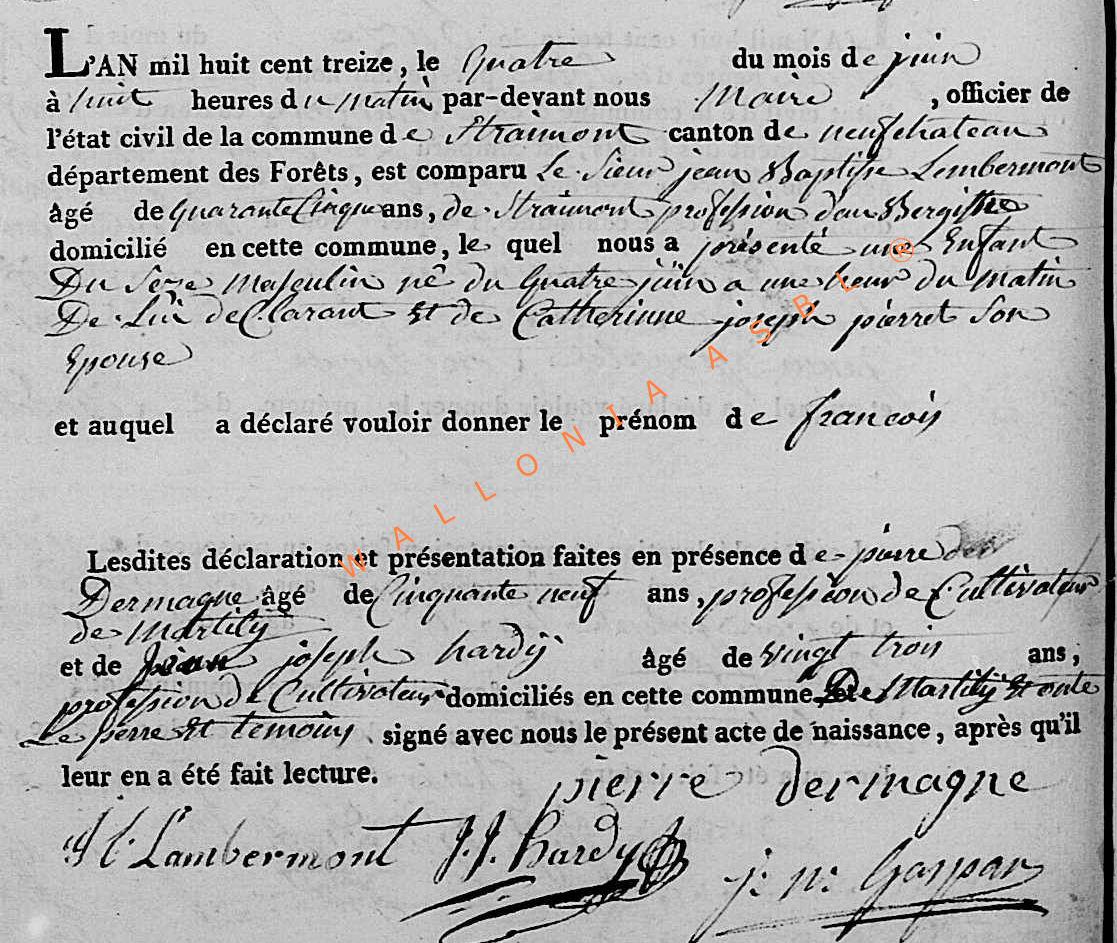 L'AN mil huit cent treize, le Quatre du mois de juin
à huit heures du matin par-devant nous Maire, officier de
l'état civil de la commune de Straimont canton de neufchateau
département des Forêts, est comparu Le Sieur jean Baptiste Lembermont
âgé de Quarante Cinque ans, de Straimont profession dun
domicilié en cette commune, le quel nous a présenté une Enfant
Du Sexe Masculin né du Quatre juin a une heur du matin
De Lui deClarant Et de Catherinne joseph pierret Son
Epouse
et auquel a déclaré vouloir donner le prénom de francois
Lesdites déclaration et présentation faites en présence de pierre der
Dermagne âgé de Cinquante neuf ans, profession de Cultivateur
de Martilÿ
et de jean joseph hardÿ âgé de vingt trois ans,
profession de Cultivateur domiciliés en cette commune, De Martilÿ Et onte
Le perre Et temoins signé avec nous le présent acte de naissance, après qu'il
leur en a été fait lecture.
pierre dermagne
Lambermont J. J. hardy
j: n: Gaspar
WALLONIA ASBL ®